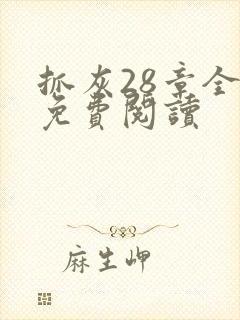 抓灰28章全
免費閱讀
麻生岬